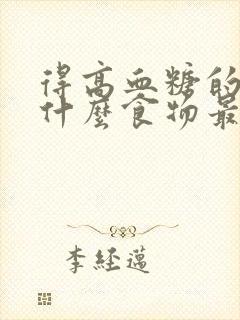 得高血糖的
什麼食物最
李經邁